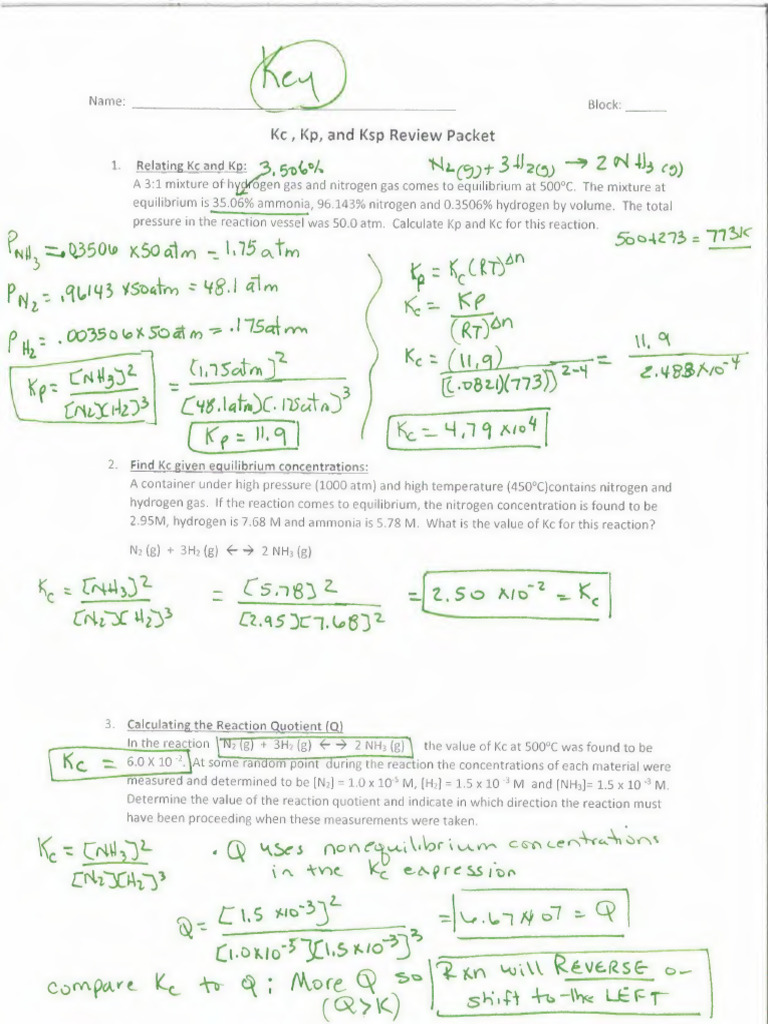 Key
Name: ____________ Block: _____
Kc , Kp, and Ksp Review Packet
1. Relating Kc and Kp: 3.506% N₂(g) + 3H₂(g) → 2NH₃(g)
A 3:1 mixture of hydrogen gas and nitrogen gas comes to equilibrium at 500°C. The mixture at
equilibrium is 35.06% ammonia, 96.143% nitrogen and 0.3506% hydrogen by volume. The total
pressure in the reaction vessel was 50.0 atm. Calculate Kp and Kc for this reaction.
500+273 = 773K
P_NH₃ = .03506 x50atm = 1.75 atm
P_N₂ = .96143 x50atm = 48.1 atm
P_H₂ = .003506x50atm = .175atm
Kp = [NH₃]² / [N₂][H₂]³ = (1.75atm)² / (48.1atm)(.175atm)³
Kp = 11.9
Kp = Kc(RT)^Δn
Kc = Kp / (RT)^Δn
Kc = (11.9) / [(.0821)(773)]^2-4 = 11.9 / 2.488x10⁻⁴
Kc = 4.79 x10⁴
2. Find Kc given equilibrium concentrations:
A container under high pressure (1000 atm) and high temperature (450°C)contains nitrogen and
hydrogen gas. If the reaction comes to equilibrium, the nitrogen concentration is found to be
2.95M, hydrogen is 7.68 M and ammonia is 5.78 M. What is the value of Kc for this reaction?
N₂ (g) + 3H₂ (g) ←→ 2 NH₃ (g)
Kc = [NH₃]² / [N₂][H₂]³ = [5.78]² / [2.95][7.68]² = 2.50 x10⁻² = Kc
3. Calculating the Reaction Quotient (Q)
In the reaction N₂ (g) + 3H₂ (g) ←→ 2 NH₃ (g) the value of Kc at 500°C was found to be
Kc = 6.0 X 10⁻². At some random point during the reaction the concentrations of each material were
measured and determined to be [N₂] = 1.0 x 10⁻⁵ M, [H₂] = 1.5 x 10⁻³ M and [NH₃]= 1.5 x 10⁻³ M.
Determine the value of the reaction quotient and indicate in which direction the reaction must
have been proceeding when these measurements were taken.
Kc = [NH₃]² / [N₂][H₂]³ • Q uses nonequilibrium concentrations
in the Kc expression
Q = [1.5 x10⁻³]² / [1.0x10⁻⁵][1.5x10⁻³]³ = 6.67x107 = Q
compare Kc to Q; More Q so Rxn will REVERSE or
(Q>K) shift to the LEFT